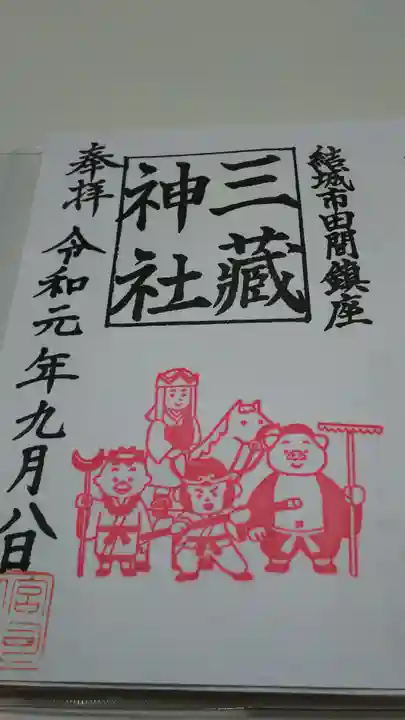 結城市田間鎮座
三蔵
神社
奉拝
令和元年九月八日